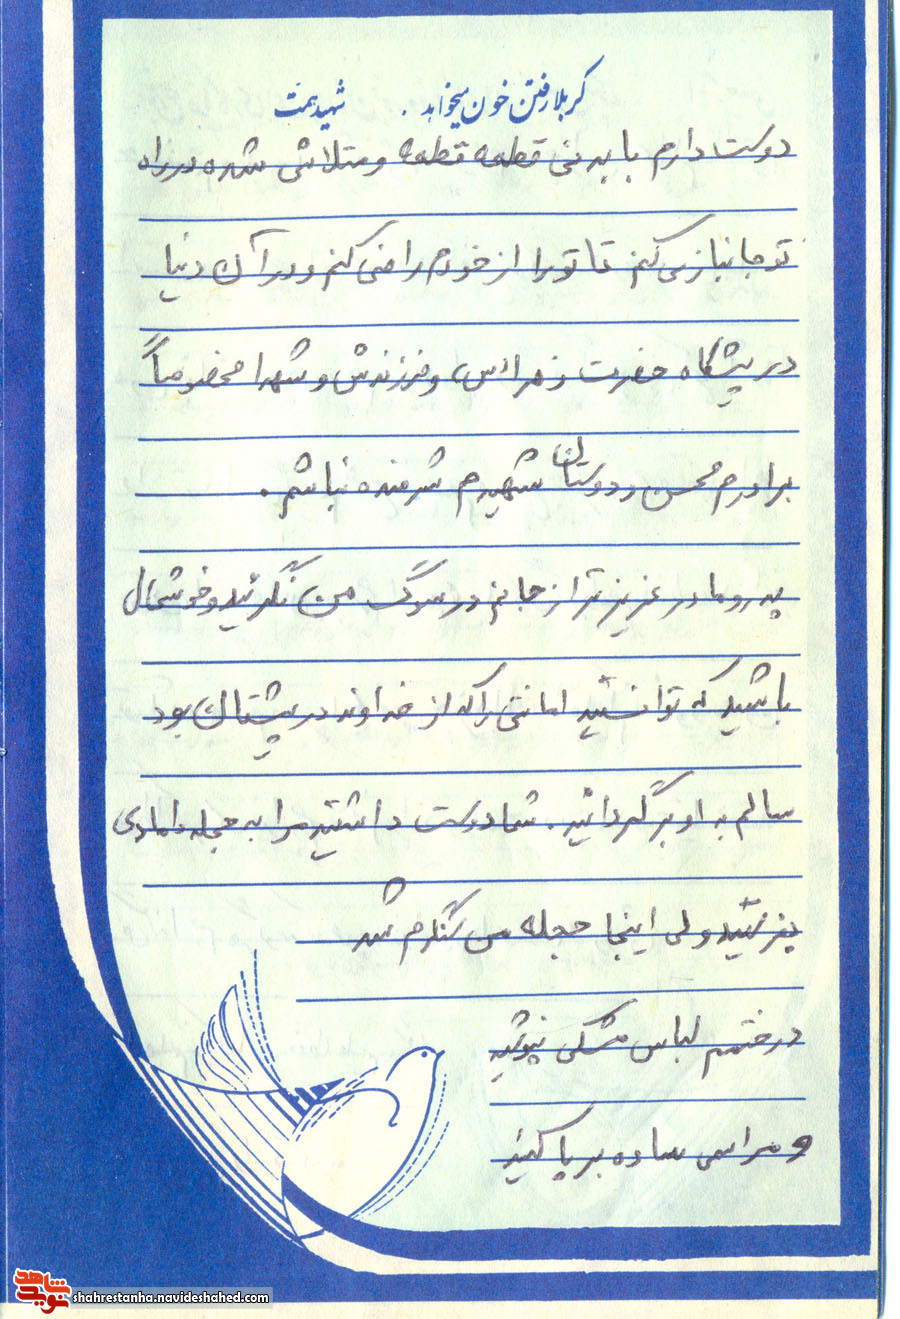 کربلا رفتن خون میخواهد . شهید همت
دوست دارم با بدنی قطعه قطعه و متلاشی شده در راه
تو جانبازی کنم تا تو را از خودم راضی کنم و در آن دنیا
در پیشگاه حضرت زهرا (س) و فرزندش و شهدا مخصوصاً
برادرم محسن و دوستان شهیدم شرمنده نباشم .
پدر و مادر عزیزتر از جانم در سوگ من نگرئید و خوشحال
باشید که توانستید امانتی را که از خداوند در پیشتان بود
سالم به او برگردانید . شما دوست داشتید مرا به حجله دامادی
بفرستید ولی اینجا حجله من سنگرم شد
در ختمم لباس مشکی نپوشید
و مراسمی ساده بر پا کنید
نوید شاهد
shahrestanha.navideshahed.com